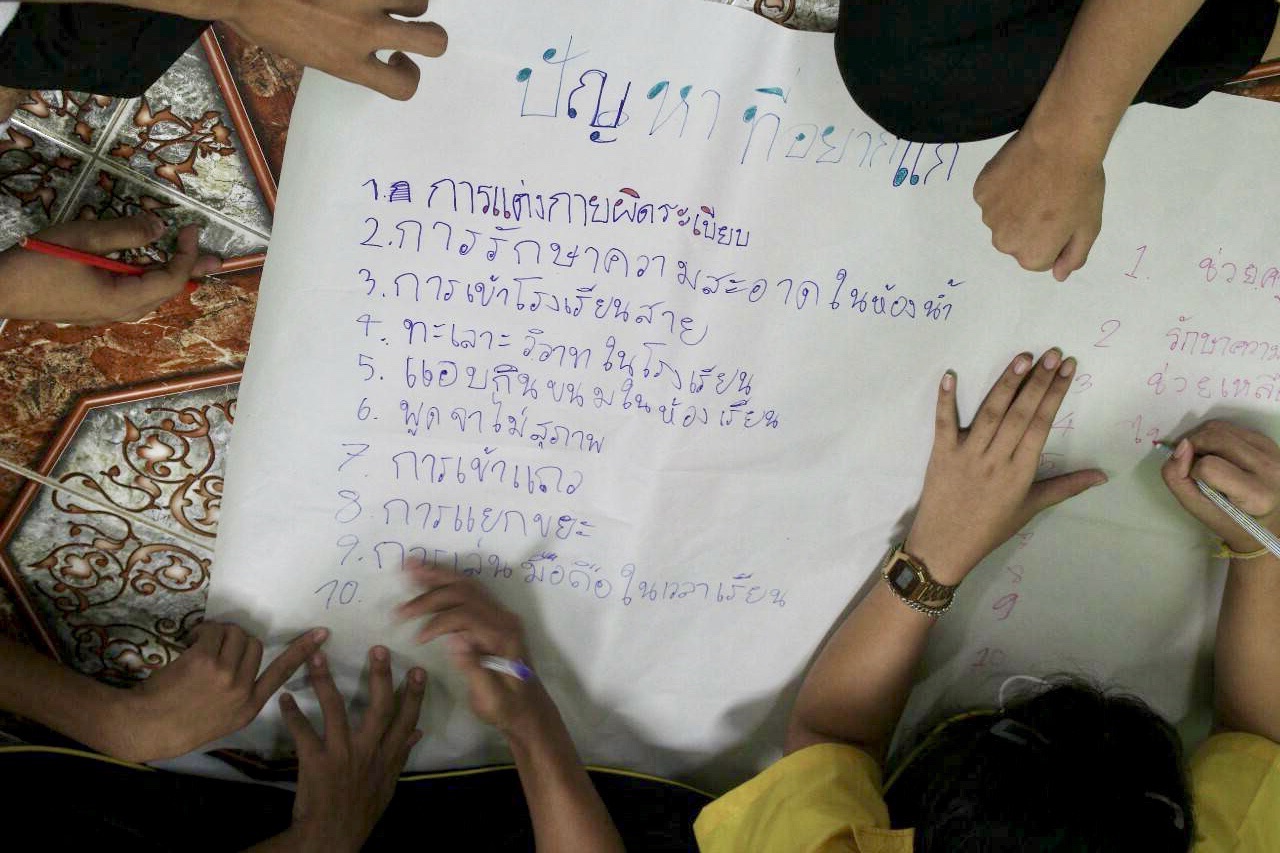 ปัญหาที่อยากแก้
1. การแต่งกายผิดระเบียบ
2. การรักษาความสะอาดในห้องน้ำ
3. การเข้าโรงเรียนสาย
4. ทะเลาะวิวาทในโรงเรียน
5. แอบกินขนมในห้องเรียน
6. พูดจาไม่สุภาพ
7. การเข้าแถว
8. การแยกขยะ
9. การเล่นมือถือในเวลาเรียน
10.
1. ช่วย
2 รักษาความ
3 ช่วยเหลือ
4
5
8
9
10